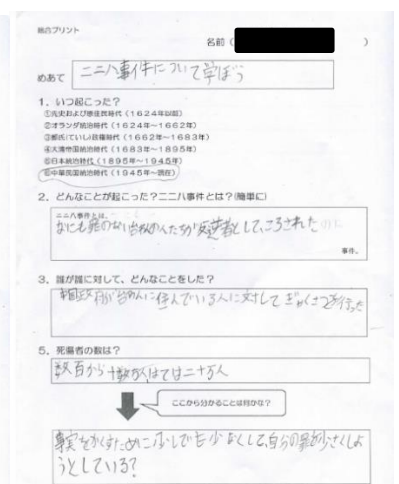 総合プリント
名前（　　　）
めあて 二二八事件について学ぼう
1．いつ起こった？
①先史および原住民時代（1624年以前）
②オランダ統治時代（1624年～1662年）
③鄭氏(ていし)政権時代（1662年～1683年）
④大清帝国統治時代（1683年～1895年）
⑤日本統治時代（1895年～1945年）
⑥中華民国統治時代（1945年～現在）
2．どんなことが起こった？二二八事件とは？(簡単に)
二二八事件とは、
なにも罪のない台わんの人たちが反逆者として、ころされた
事件。
3．誰が誰に対して、どんなことをした？
中国政府が台わんに住んでいる人に対して ぎゃくさつを行った
5．死傷者の数は？
数百から十数万人はては二十万人
ここから分かることは何かな？
事実をかくすために少しでも少なくして、自分の罪を少さくしよ
うとしている？